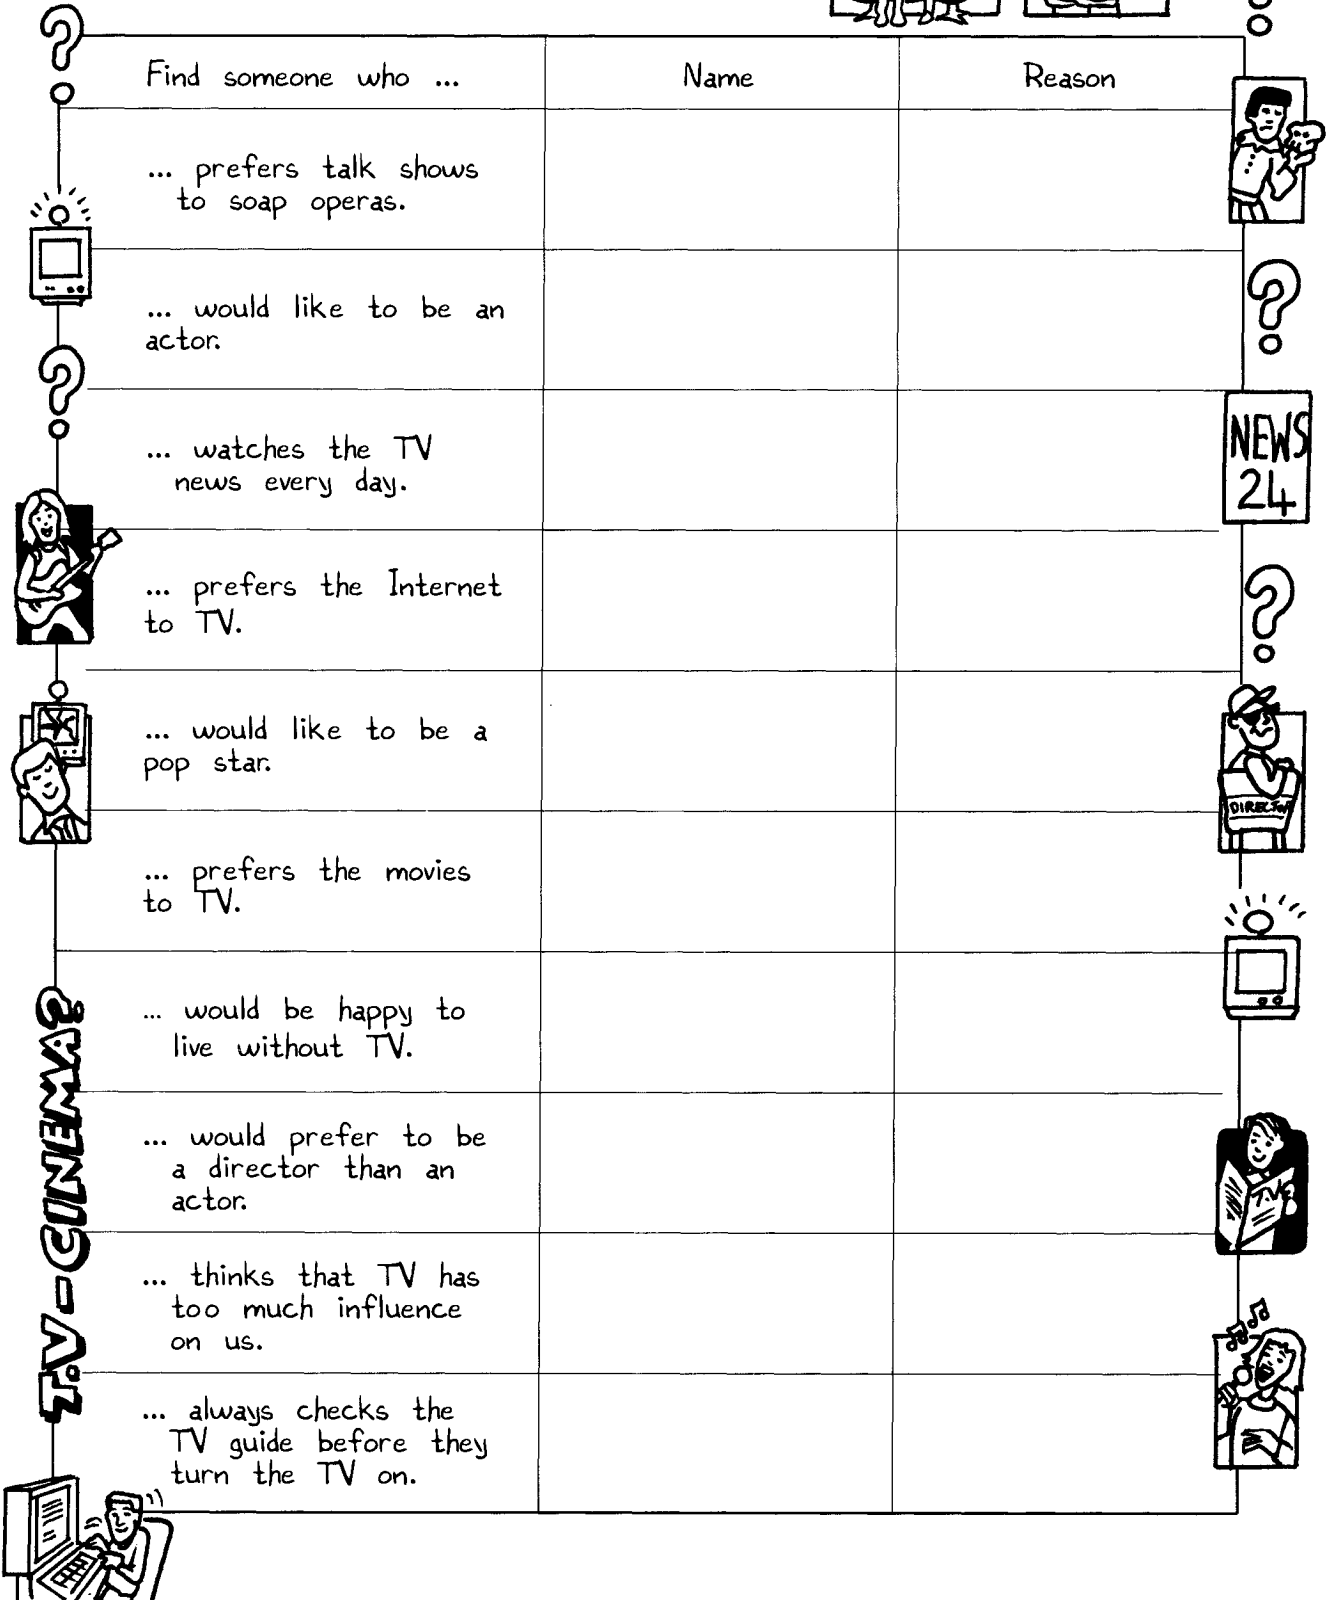 Find someone who ...
Name
Reason
... prefers talk shows
to soap operas.
... would like to be an
actor.
... watches the TV
news every day.
... prefers the Internet
to TV.
... would like to be a
pop star.
... prefers the movies
to TV.
... would be happy to
live without TV.
... would prefer to be
a director than an
actor.
... thinks that TV has
too much influence
on us.
... always checks the
TV guide before they
turn the TV on.
T.V-CINEMA?
NEWS
24
DIRECTOR
TV